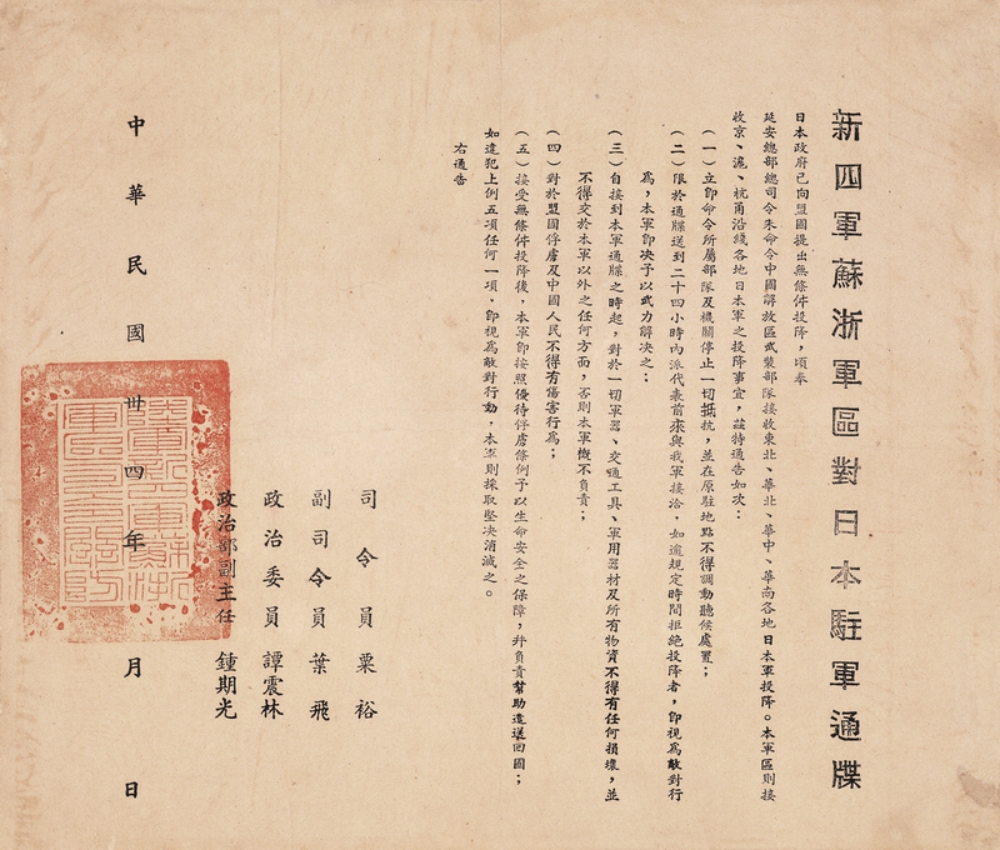 新四軍蘇浙軍區對日本駐軍通牒
日本政府已向盟國提出無條件投降，頃奉
延安總部總司令朱命令中國解放區武裝部隊接收東北、華北、華中、華南各地日本軍投降。本軍區則接
收京、滬、杭甬沿綫各地日本軍之投降事宜，茲特通告如次：
（一）立卽命令所屬部隊及機關停止一切抵抗，並在原駐地點不得調動聽候處置；
（二）限於通牒送到二十四小時內派代表前來與我軍接洽．如逾規定時間拒絕投降者，卽視爲敵對行
爲，本軍卽决予以武力解决之：
（三）自接到本軍通牒之時起，對於一切軍器、交通工具、軍用器材及所有物資不得有任何損壞，並
不得交於本軍以外之任何方面，否則本軍概不負責；
（四）對於盟國俘虜及中國人民不得有傷害行爲；
（五）接受無條件投降後，本軍卽按照優待俘虜條例予以生命安全之保障，并負責幫助遣送回國；
如違犯上例五項任何一項．卽視爲敵對行動，本軍則採取堅决消滅之。
右通告
司令員 粟裕
副司令員 葉飛
政治委員 譚震林
政治部副主任 鍾期光
中華民國卅四年 月 日